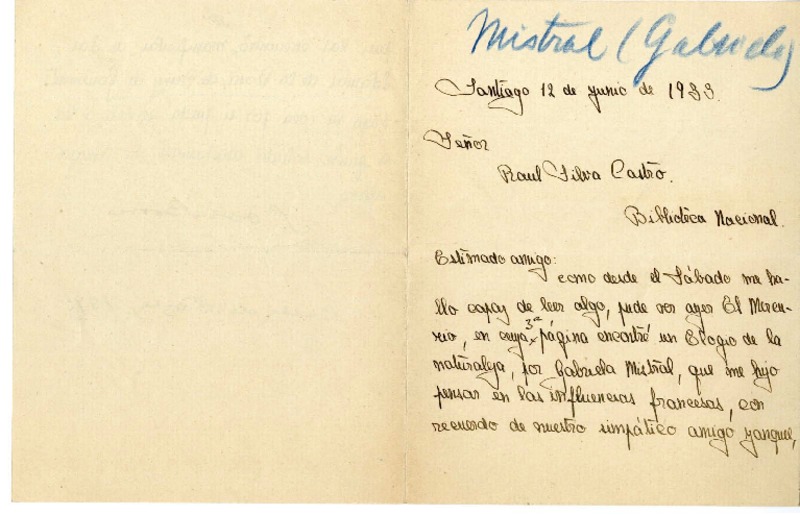 Mistral (Gabriela)
Santiago 12 de junio de 1933.
Señor
Raul Silva Castro.
Biblioteca Nacional.
Estimado amigo:
como desde el Sábado me ha-
llo capaz de leer algo, pude ver ayer El Mercu-
rio, en cuya 3ª página encontré un Elogio de la
naturaleza, por Gabriela Mistral, que me hizo
pensar en las influencias francesas, con
recuerdo de nuestro simpático amigo yanquee,